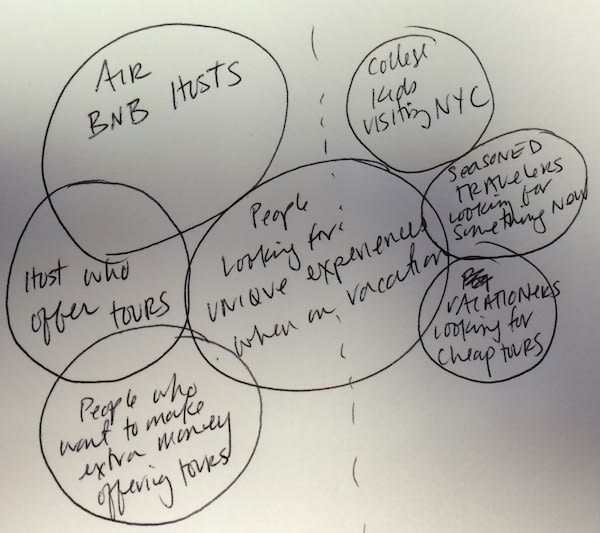 AIR
BNB HOSTS
College
kids
visiting NYC
SEASONED
TRAVELERS
looking for
something NEW
People
looking for
UNIQUE experiences
when on vacation
Host who
offer TOURS
VACATIONERS
looking for
cheap TOURS
People who
want to make
extra money
offering TOURS